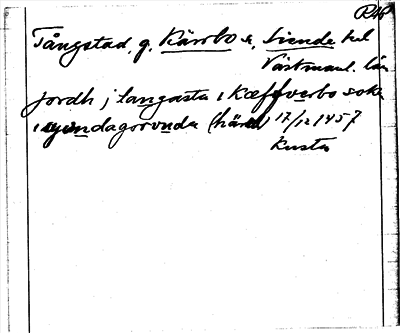 RAp
Tångstad, g. Kärrbo sn, Siende hd
Västmanl. län
jordh j langasta i Kæffverbo sokn
i syændagorunda (härad) 17/12 1457
Kusta